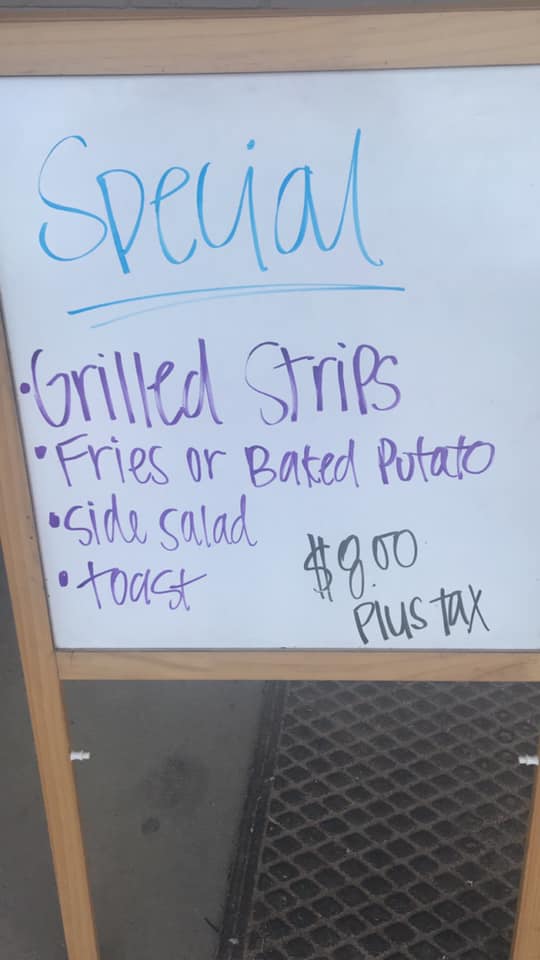 Special
• Grilled Strips
• Fries or Baked Potato
• Side Salad
• toast
$8.00
Plus tax